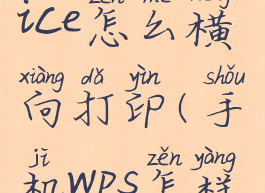 ice怎么横
xiàng dǎ yìn shǒu
向打印(手
jī zěn yàng
机WPS怎样